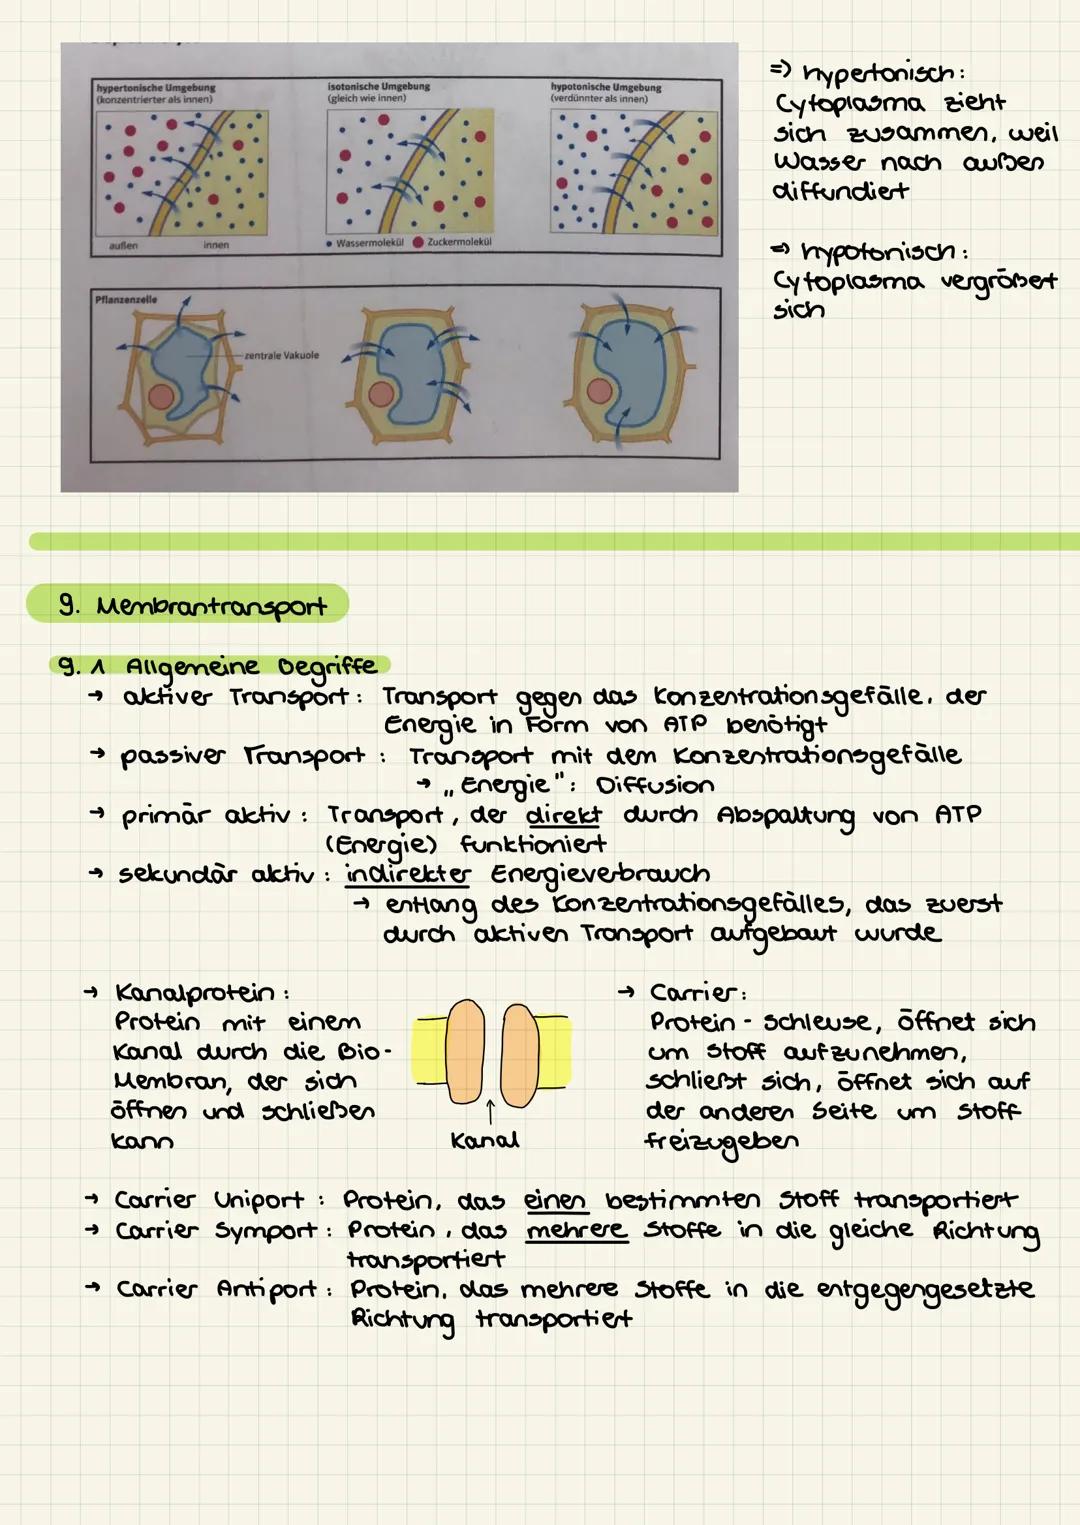 hypertonische Umgebung
(konzentrierter als innen)
isotonische Umgebung
(gleich wie innen)
hypotonische Umgebung
(verdünnter als innen)
außen
innen
Wassermolekül
Zuckermolekül
Pflanzenzelle
zentrale Vakuole
=> hypertonisch:
Cytoplasma zieht
sich zusammen, weil
Wasser nach außen
diffundiert
=> hypotonisch:
Cytoplasma vergrößert
sich
9. Membrantransport
9.1 Allgemeine Begriffe
→ aktiver Transport: Transport gegen das Konzentrationsgefälle, der
Energie in Form von ATP benötigt
→ passiver Transport: Transport mit dem Konzentrationsgefälle
→ „Energie": Diffusion
→ primär aktiv: Transport, der direkt durch Abspaltung von ATP
(Energie) funktioniert
→ sekundär aktiv: indirekter Energieverbrauch
→ entlang des Konzentrationsgefälles, das zuerst
durch aktiven Transport aufgebaut wurde
→ Kanalprotein:
Protein mit einem
Kanal durch die Bio-
Membran, der sich
öffnen und schließen
kann
Kanal
→ Carrier:
Protein-Schleuse, öffnet sich
um Stoff aufzunehmen,
schließt sich, öffnet sich auf
der anderen Seite um Stoff
freizugeben
→ Carrier Uniport: Protein, das einen bestimmten Stoff transportiert
→ Carrier Symport: Protein, das mehrere Stoffe in die gleiche Richtung
transportiert
→ Carrier Antiport: Protein, das mehrere Stoffe in die entgegengesetzte
Richtung transportiert